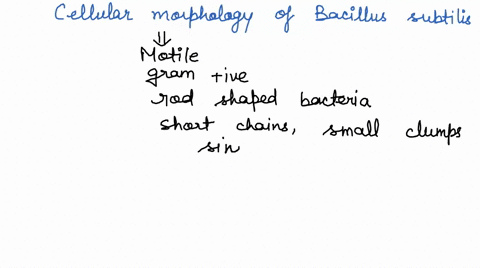 Cellular morphology of Bacillus subtilis
⇓
Motile
gram +ive
rod shaped bacteria
short chains, small clumps
sin